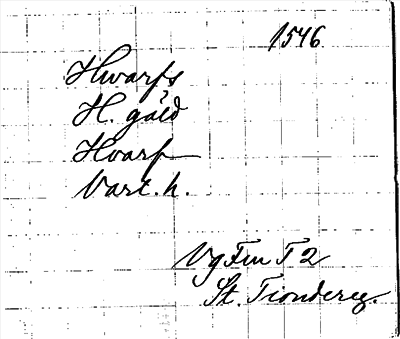 1546.
Hwarfs
H. gäld
Hvarf
Vart. h.
Vg Fru T 2
St. Tiondereg.